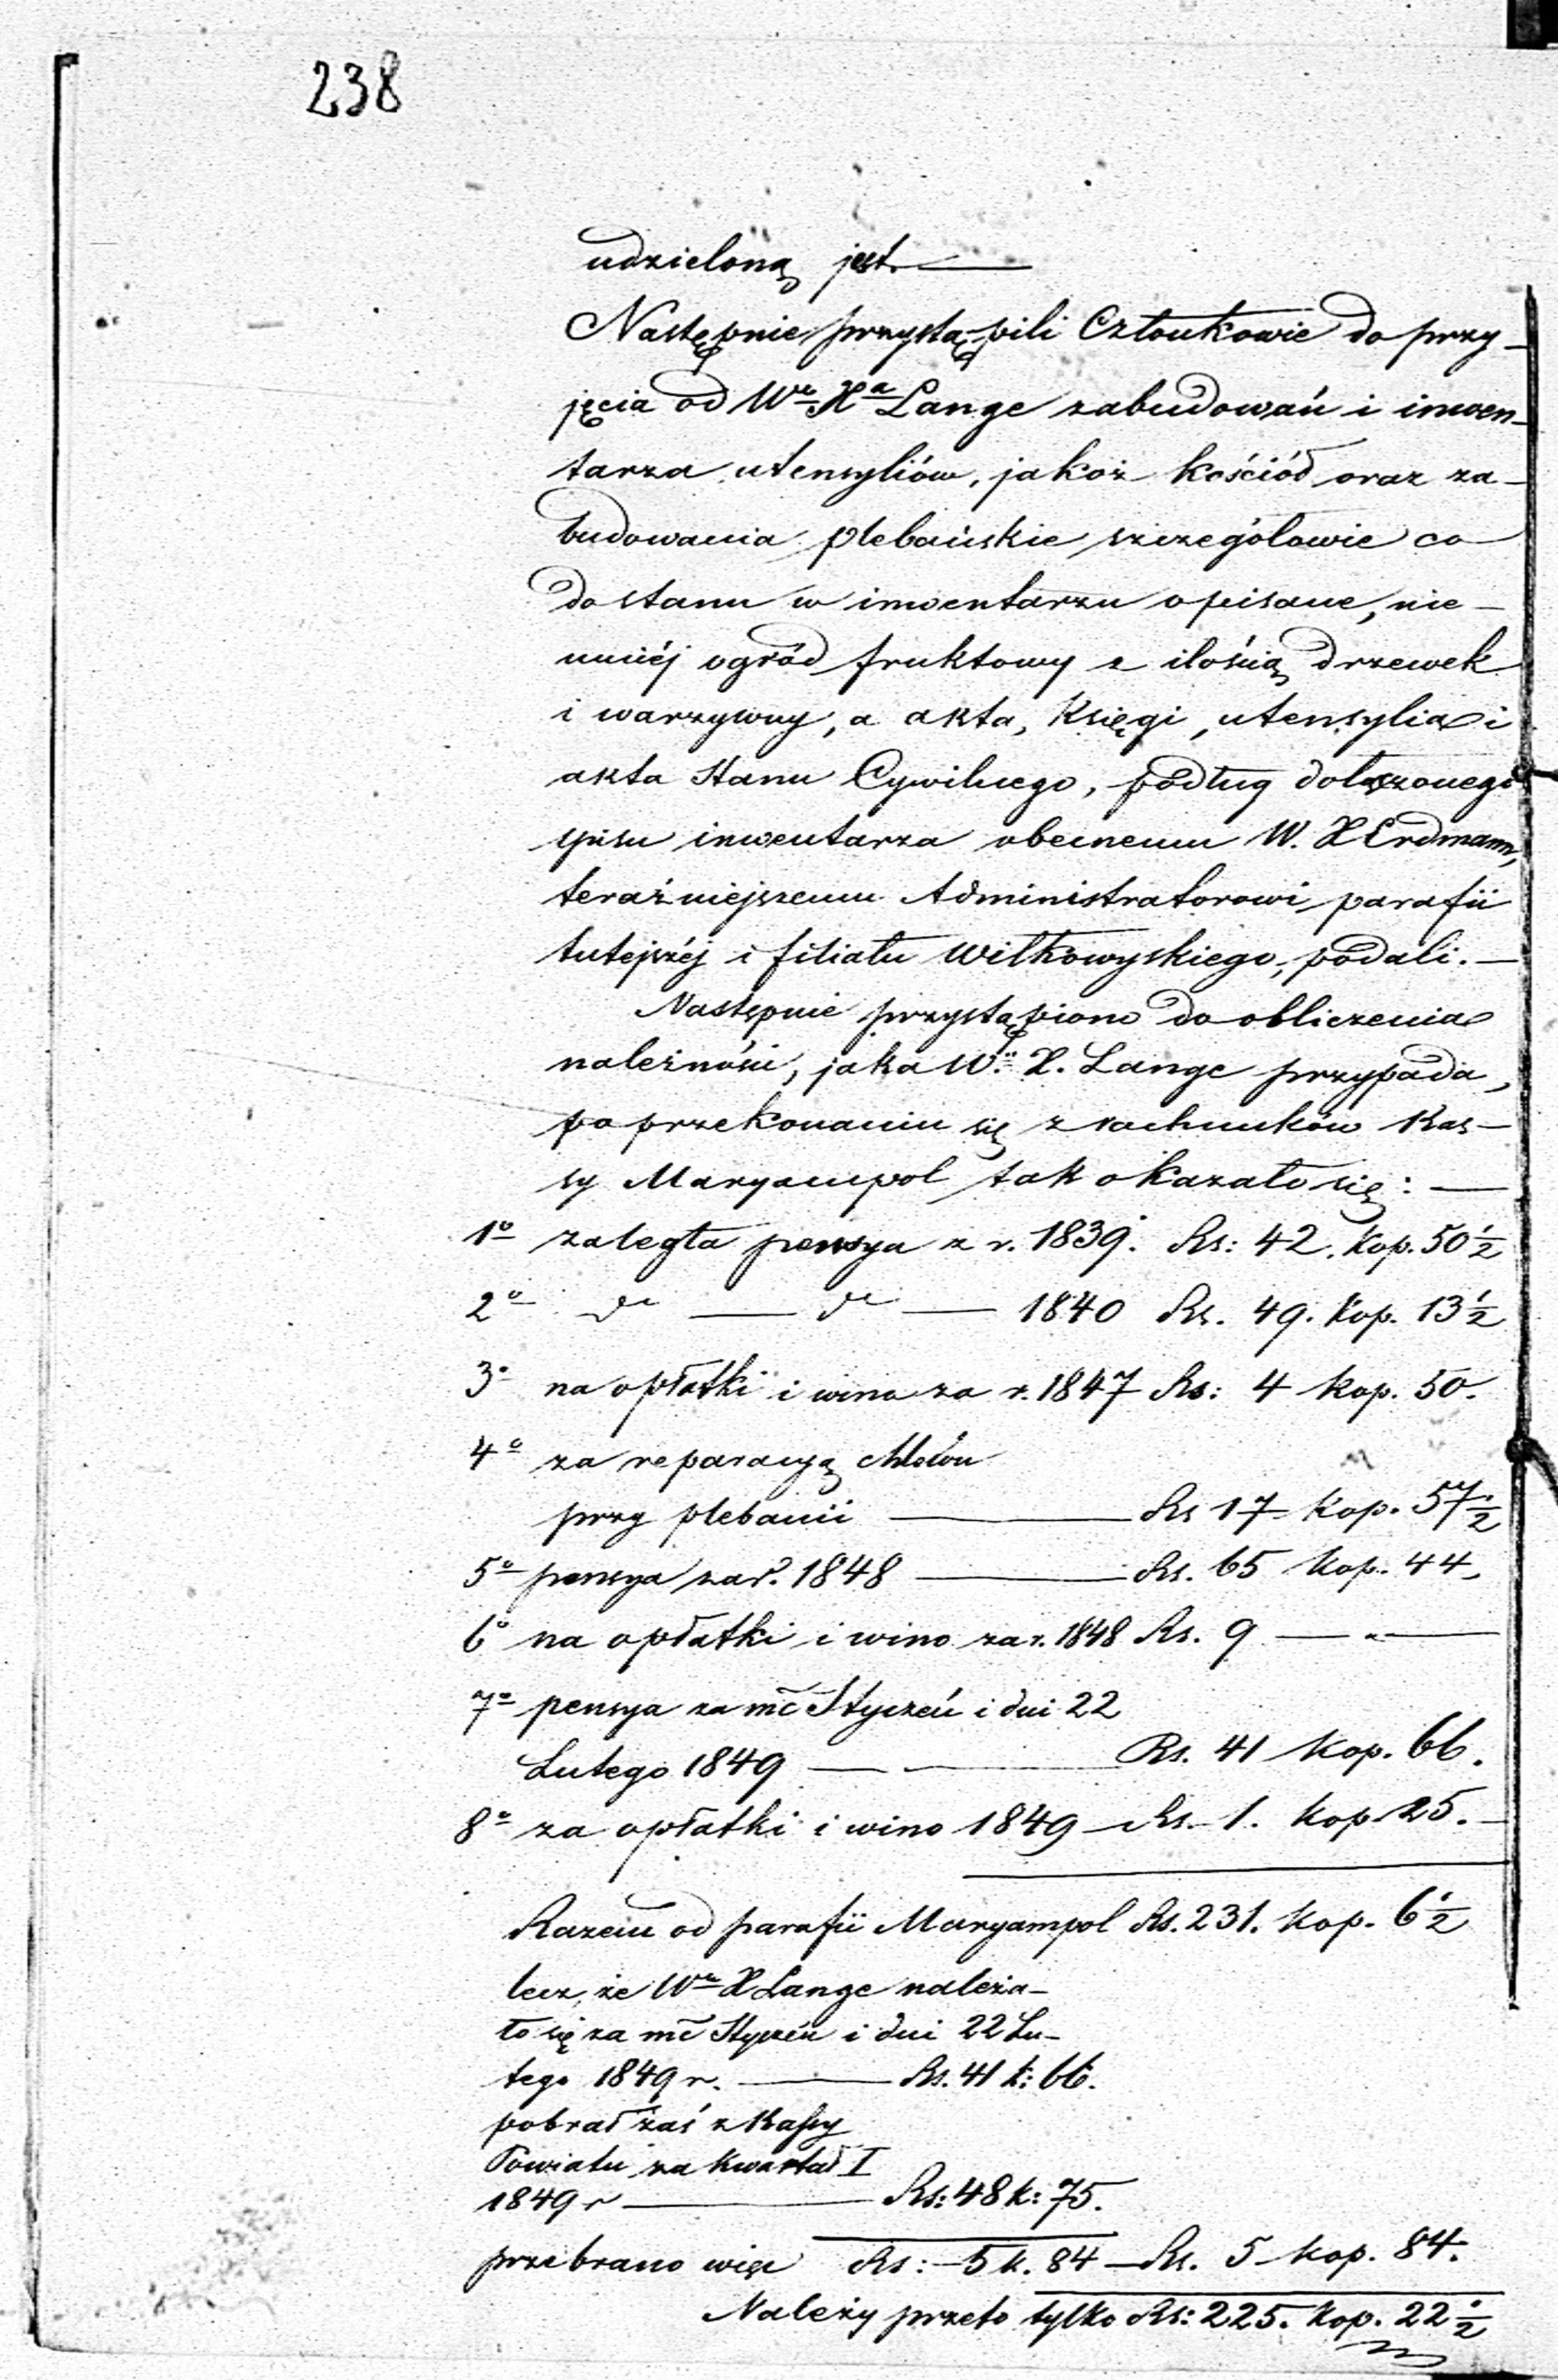 238
udzieloną jest. —
Następnie przystąpili Członkowie do przy-
jęcia od Wo Xa Lange zabudowań i inwen-
tarza utensyliów, jakoż kościół oraz za-
budowania plebańskie szczegółowie co
do stanu w inwentarzu opisane, nie-
mniéj ogród fruktowy z ilością drzewek
i warzywny, a akta, księgi, utensylia i
akta Stanu Cywilnego, podług dołączonego
spisu inwentarza obecnemu W. X Erdmann,
teraźniejszemu Administratorowi parafii
tutejszéj i filiału Wiłkowyskiego, podali. —
Następnie przystąpiono do obliczenia
należności, jaka W. X. Lange przypada,
po przekonaniu się z rachunków Kas-
sy Maryampol tak okazało się: —
1o zaległa pensya z r. 1839. Rs: 42. Kop. 50 1/2
2o do — do — 1840 Rs. 49. Kop. 13 1/2
3o na opłatki i wino za r. 1847 Rs: 4 kop. 50.
4o za reparacyą chlewów
przy plebanii — Rs 17 kop. 57 1/2
5o pensya za r. 1848 — Rs. 65 kop. 44,
6o na opłatki i wino za r. 1848 Rs. 9 — " —
7o pensya za mc Styczeń i dni 22
Lutego 1849 — — Rs. 41 kop. 66.
8o za opłatki i wino 1849 — Rs. 1. kop 25. —
Razem od parafii Maryampol Rs. 231. kop. 6 1/2
lecz, że Wu X Lange należa-
ło się za mc Styczeń i dni 22 Lu-
tego 1849 r. — Rs. 41 k: 66.
pobrał zaś z Kassy
Powiatu za kwartał I
1849 r — Rs: 48 k: 75.
przebrano więc Rs: — 5 k. 84 — Rs. 5 kop. 84.
Należy przeto tylko Rs: 225. kop. 22 1/2